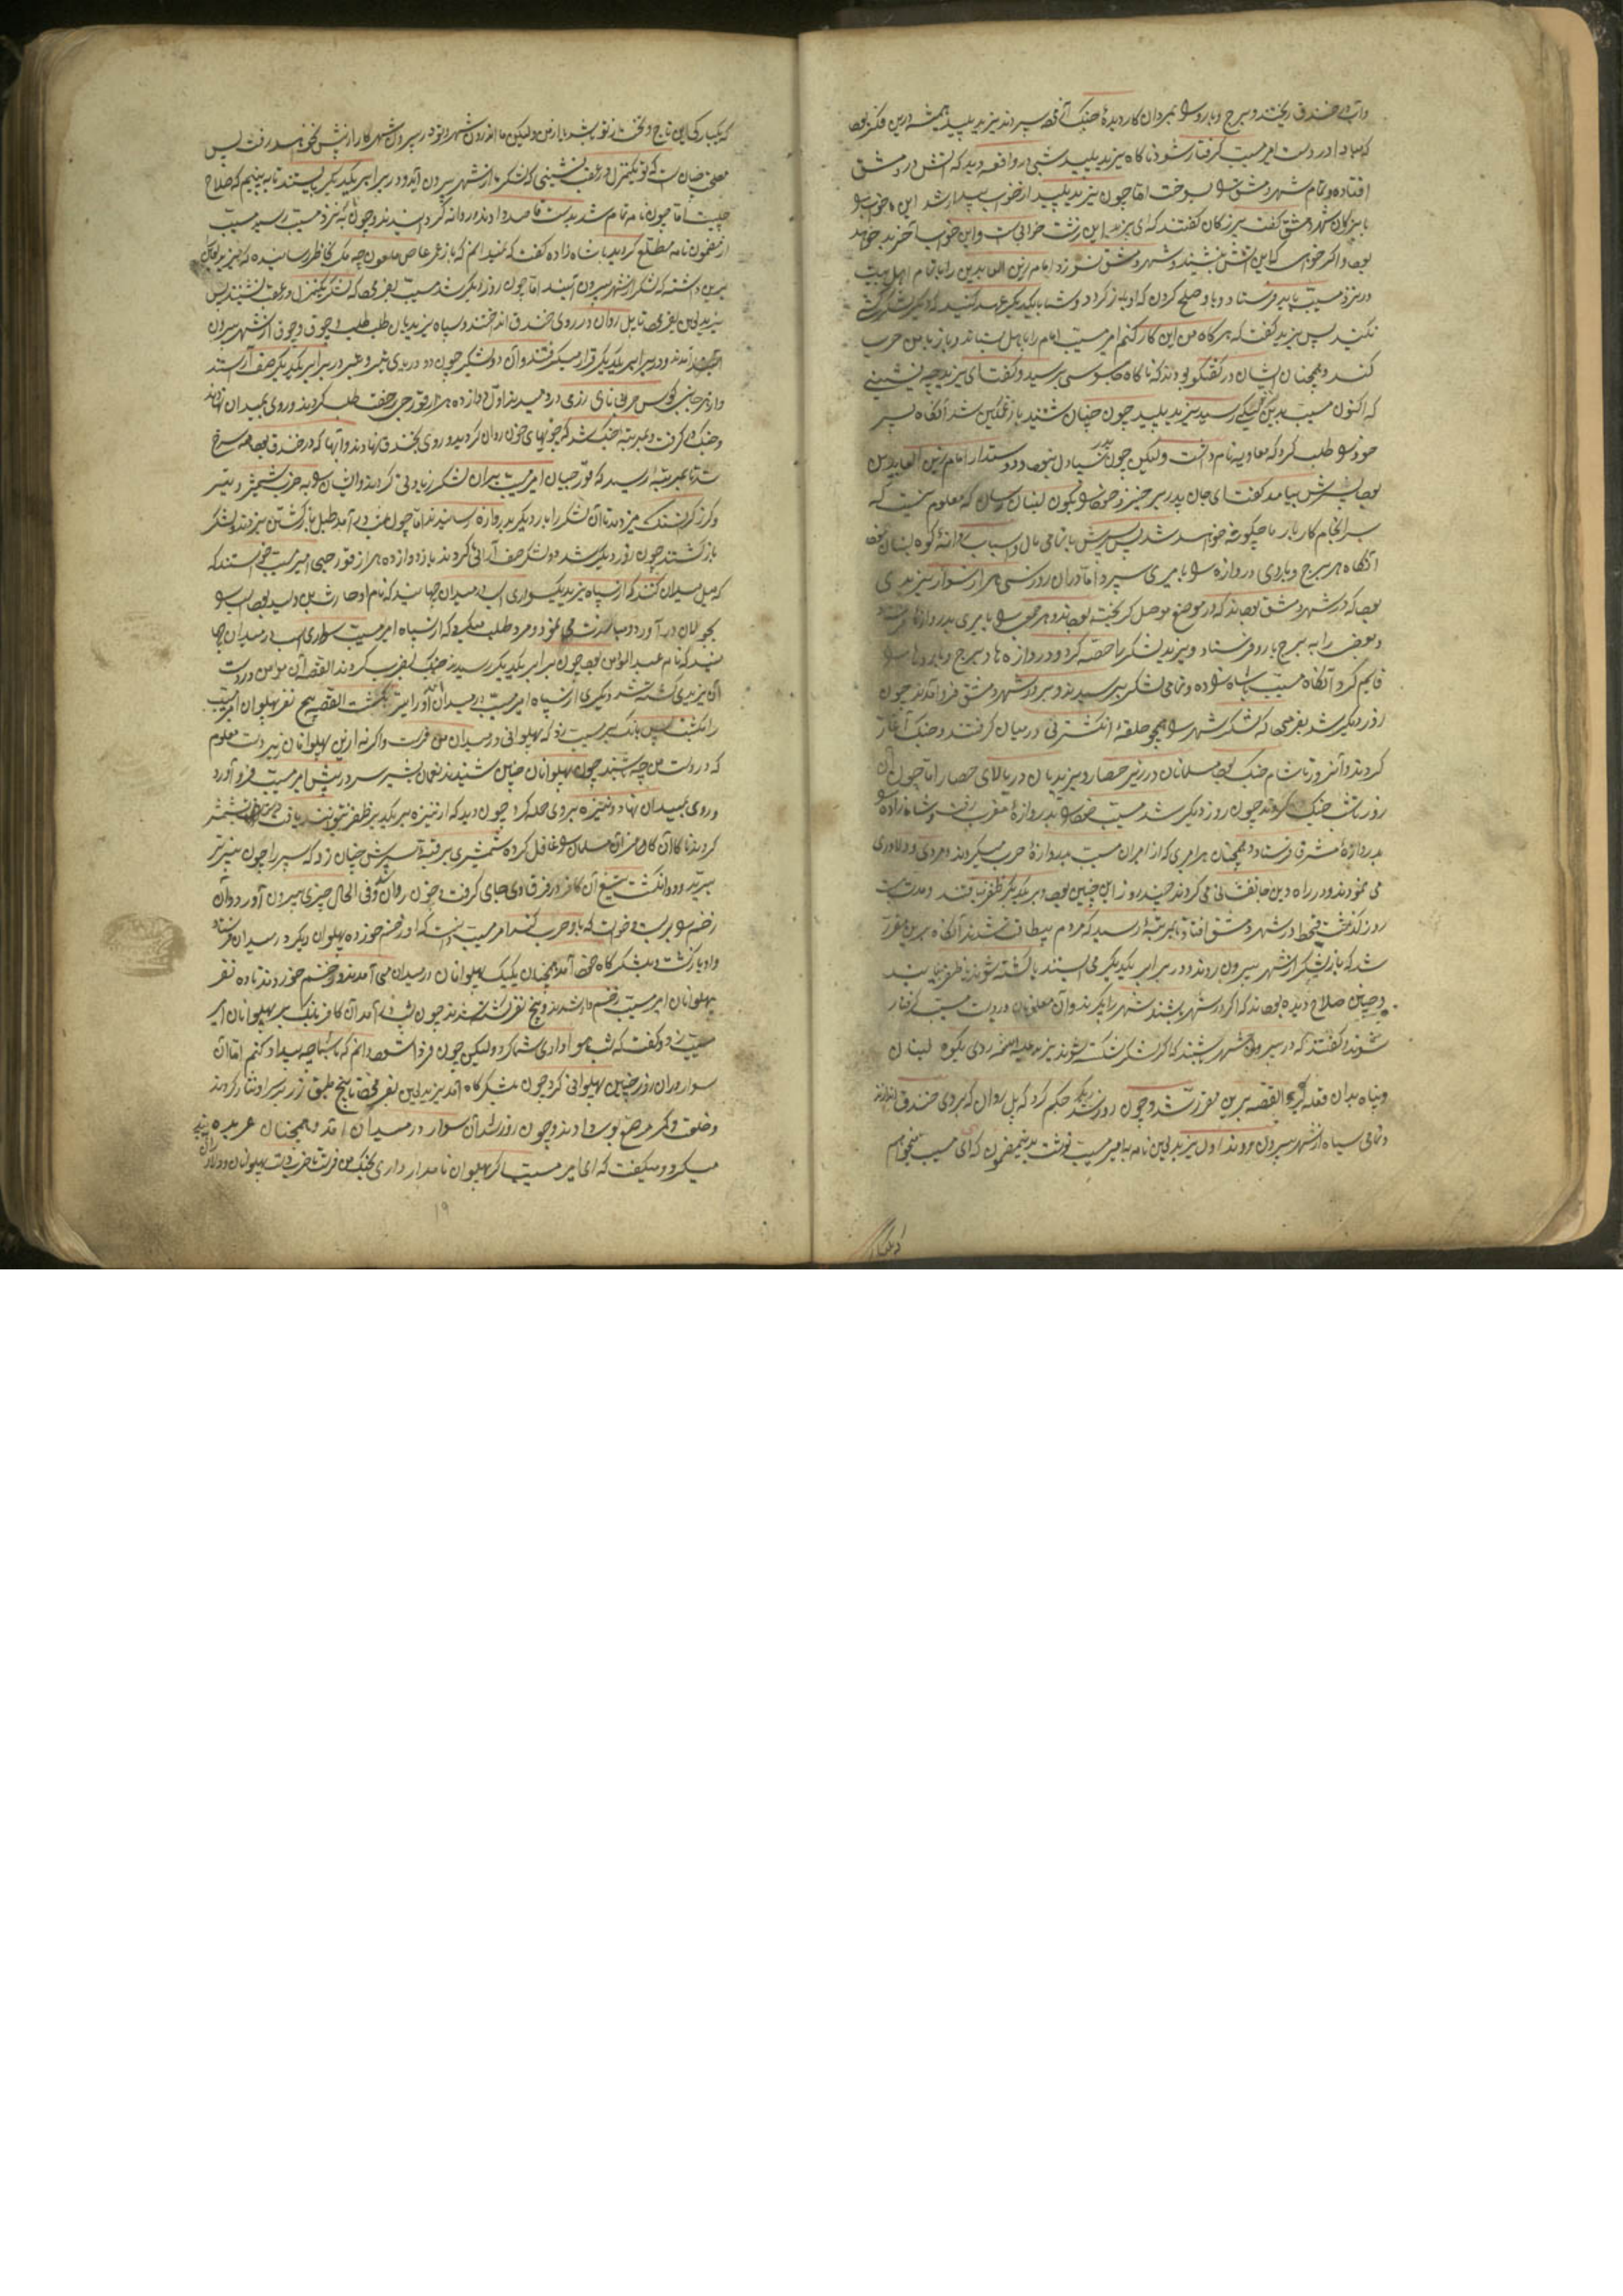 و آب در خندق ریختند و برج و بارو را بمردان کار دیده جنک آزموده سپردند یزید پلید همیشه درین فکر بود
که مبادا در دست امیر مسیب گرفتار شود ناکاه یزید پلید شبی در واقعه دید که آتش در دمشق
افتاده و تمام شهر دمشق را بسوخت اما چون یزید پلید از خواب بیدار شد این خواب را
با بزرگان شهر دمشق گفت بزرکان کفتند که ای یزید این زشت خوابی است و این خواب
بود و اکر خواهی که این آتش بنشیند و شهر دمشق نسوزد امام زین العابدین را با تمام اهل بیت
در نزد مسیب باید فرستاد و با او صلح کردن که او باز کردد و شما با یکدیگر عهد کنید که دیگر لشکر کشی
نکنید پس یزید کفت که هر کاه من این کار کنم امیر مسیب امام را با اهل بستاند و باز با من حرب
کند و همچنان ایشان در کفتکو بودند که ناکاه جاسوسی برسید و کفت ای یزید چه نشینی
که اکنون مسیب رسید یزید پلید چون چنان شنید باز غمکین شد آنکاه پسر
خود را طلب کرد که معاویه نام داشت ولیکن چون پدر سیاه دل نبود و دوستدار امام زین العابدین
بود پسرش بیامد کفت ای جان پدر برخیز و خود را بکوه لبنان رسان که معلوم نیست که
سرانجام کار بار ما چکونه خواهد شد پس پسرش با تمامی مال و اسباب روانهٔ کوه لبنان
آنکاه هر برج و باروی دروازه را بامیری سپرد اما در آن روز سی هزار سوار یزیدی
بود که در شهر دمشق بودند که در موضع موصل کریخته بودند
و بعضی را به برج بارو فرستاد و یزید لشکر را حصه کرد و در دروازه ها و برج و باروها
قایم کرد آنکاه مسیب با شاه زاده و تمامی لشکر برسیدند و بر در شهر دمشق فرو آمدند چون
روز دیکر شد بفرمود که لشکر شهر را همچو حلقهٔ انکشتری در میان کرفتند و جنک آغاز
کردند و آنروز تا شام جنک بود مسلمانان در زیر حصار و یزیدیان در بالای حصار اما چون آن
روز تا شب جنک کردند چون روز دیکر شد مسیب خود را بدروازهٔ مغرب رفت و شاه زاده را
بدروازهٔ مشرق فرستاد و همچنان هر امیری که از امیران مسیب بدروازهٔ حرب میکردند و مردی و دلاوری
می نمودند و در راه دین جانفشانی می کردند چند روز این چنین بود و بر یکدیگر ظفر نیافتند و مدت بیست
روز کذشت قحط در شهر دمشق افتاد و بمرتبهٔ رسید که مردم بیطاقت شدند آنکاه برین مقرر
شد که باز لشکر از شهر بیرون روند و در برابر یکدیکر می ایستند یا کشته شوند یا ظفر بیابند
و چنین صلاح دیده بودند که اکر در شهر باشند شهر را بکیرند و آن ملعونان در دست مسیب کرفتار
شوند و کفتند که در بیرون شهر باشند که اکر لشکر شکسته شوند یزید علیه اللعنه روی بکوه لبنان
و پناه بدان قلعه کیرد القصه برین مقرر شد و چون روز دیکر شد حکم کرد که پل روان که بر روی خندق اندازند
و تمامی سپاه از شهر بیرون روند اول یزید لعین نامه به امیر مسیب نوشت بدینمضمون که ای مسیب میخواهم
که یکبارکی این تاج و تخت از تو باشد یا از من ولیکن ما اندرون شهر و تو در بیرون شهر کار از پیش نخواهد رفت پس
مصلحت چنان است که تو یکمنزل در عقب نشینی که لشکر ما از شهر بیرون آید و در برابر یکدیکر بایستند تا به بینیم که صلاح
چیست اما چون نامه تمام شد بدست قاصد دادند و روانه کردانیدند و چون نامه به نزد مسیب رسید مسیب
از مضمون نامه مطلع کردید با شاه زاده کفت که نمیدانم که باز عمر عاص ملعون چه مکر بخاطر رسانیده که یزید
برین داشته که لشکر از شهر بیرون آیند اما چون روز دیکر شد مسیب بفرمود که لشکر یکمنزل در عقب نشینند پس
یزید لعین بفرمود تا پل روان در روی خندق انداختند و سپاه یزیدیان طلب طلب و جوق جوق از شهر بیرون
آمدند و در برابر یکدیکر قرار میکرفتند و آن دو لشکر چون دو دریای در برابر یکدیکر صف آراستند
و از هر جانب کوس حربی نای رزمی در دمیدند اول دوازده هزار قورچی
و جنک در کرفت و بمرتبهٔ جنک شد که جویهای خون روان کردید و روی بخندق نهادند و آبها که در خندق بود همه سرخ
شد تا بمرتبهٔ رسید که قورچیان امیر مسیب بر آن لشکر زیادتی کردند و ایشان را به ضرب شمشیر و تیر
و کرز کران سنک میزدند تا آن لشکر را بدر دیکر بدروازه رسانیدند اما چون شب در آمد طبل بازکشتن بزدند و لشکر
بازکشتند چون روز دیکر شد دو لشکر صف آرائی کردند باز دوازده هزار قورچی امیر مسیب خواستند که
که میل میدان کنند که از سپاه یزید یکسواری اسب در میدان جهانید که نام او حارث بن ولید بود اسب را
بجولان در آورد و مبارزت می نمود و مرد طلب میکرد که از سپاه امیر مسیب سواری اسب در میدان جها
نید که نام عبدالواسع بود چون برابر یکدیکر رسیدند جنک بضرب کردند القصه آن مومن در دست
آن یزیدی کشته شد دیکری از سپاه امیر مسیب در میدان آمد او را نیز بکشت القصه پنج نفر پهلوان امیر مسیب
را بکشت پس بانک بر مسیب زد که پهلوانی در میدان من فرست و اکر نه ازین پهلوانان زبردست معلوم
که در دست من چه باشند چون پهلوانان چنین شنیدند نعمان بشیر سر در پیش امیر مسیب فرو آورد
و روی بمیدان نهاد و نیزه بر وی حمله کرد چون دید که از نیزه بر یکدیکر ظفر نتوانند یافت
کردند ناکاه آن کافر مر آن مسلمان را غافل کرده شمشیری بر قبهٔ سپرش چنان زد که سپر را چون پنیر تر
ببرید و دو انکشت تیغ آن کافر در فرق وی جای کرفت و خون روان شد و فی الحال چیزی بیرون آورد و آن
زخم را بر بست و خواست که با او حرب کند امیر مسیب دانست که او زخم خورده پهلوان دیکر در میدان فرستاد
و او بازکشت و بلشکرکاه خود آمد همچنان یک یک پهلوانان در میدان می آمدند و زخم خوردند تا ده نفر
پهلوانان امیر مسیب زخم دار شدند و پنج نفر کشته شدند چون شب در آمد آن کافر بانک بر پهلوانان امیر
مسیب زد و کفت که شب هواداری شما کرد ولیکن چون فردا شود دانم که با شما چه بیداد کنم اما آن
سوار در آن روز چنین پهلوانی کرد چون بلشکرکاه آمد یزید لعین بفرمود تا پنج طبق زر بر سر او نثار کردند
و خلعت و کمر مرصع بوی دادند و چون روز شد آن سوار در میدان آمد و همچنان عربده
میکرد و میکفت که ای امیر مسیب اکر پهلوان نامدار داری بجنک من فرست تا ضرب دست پهلوانان و دلاوران
۱۹